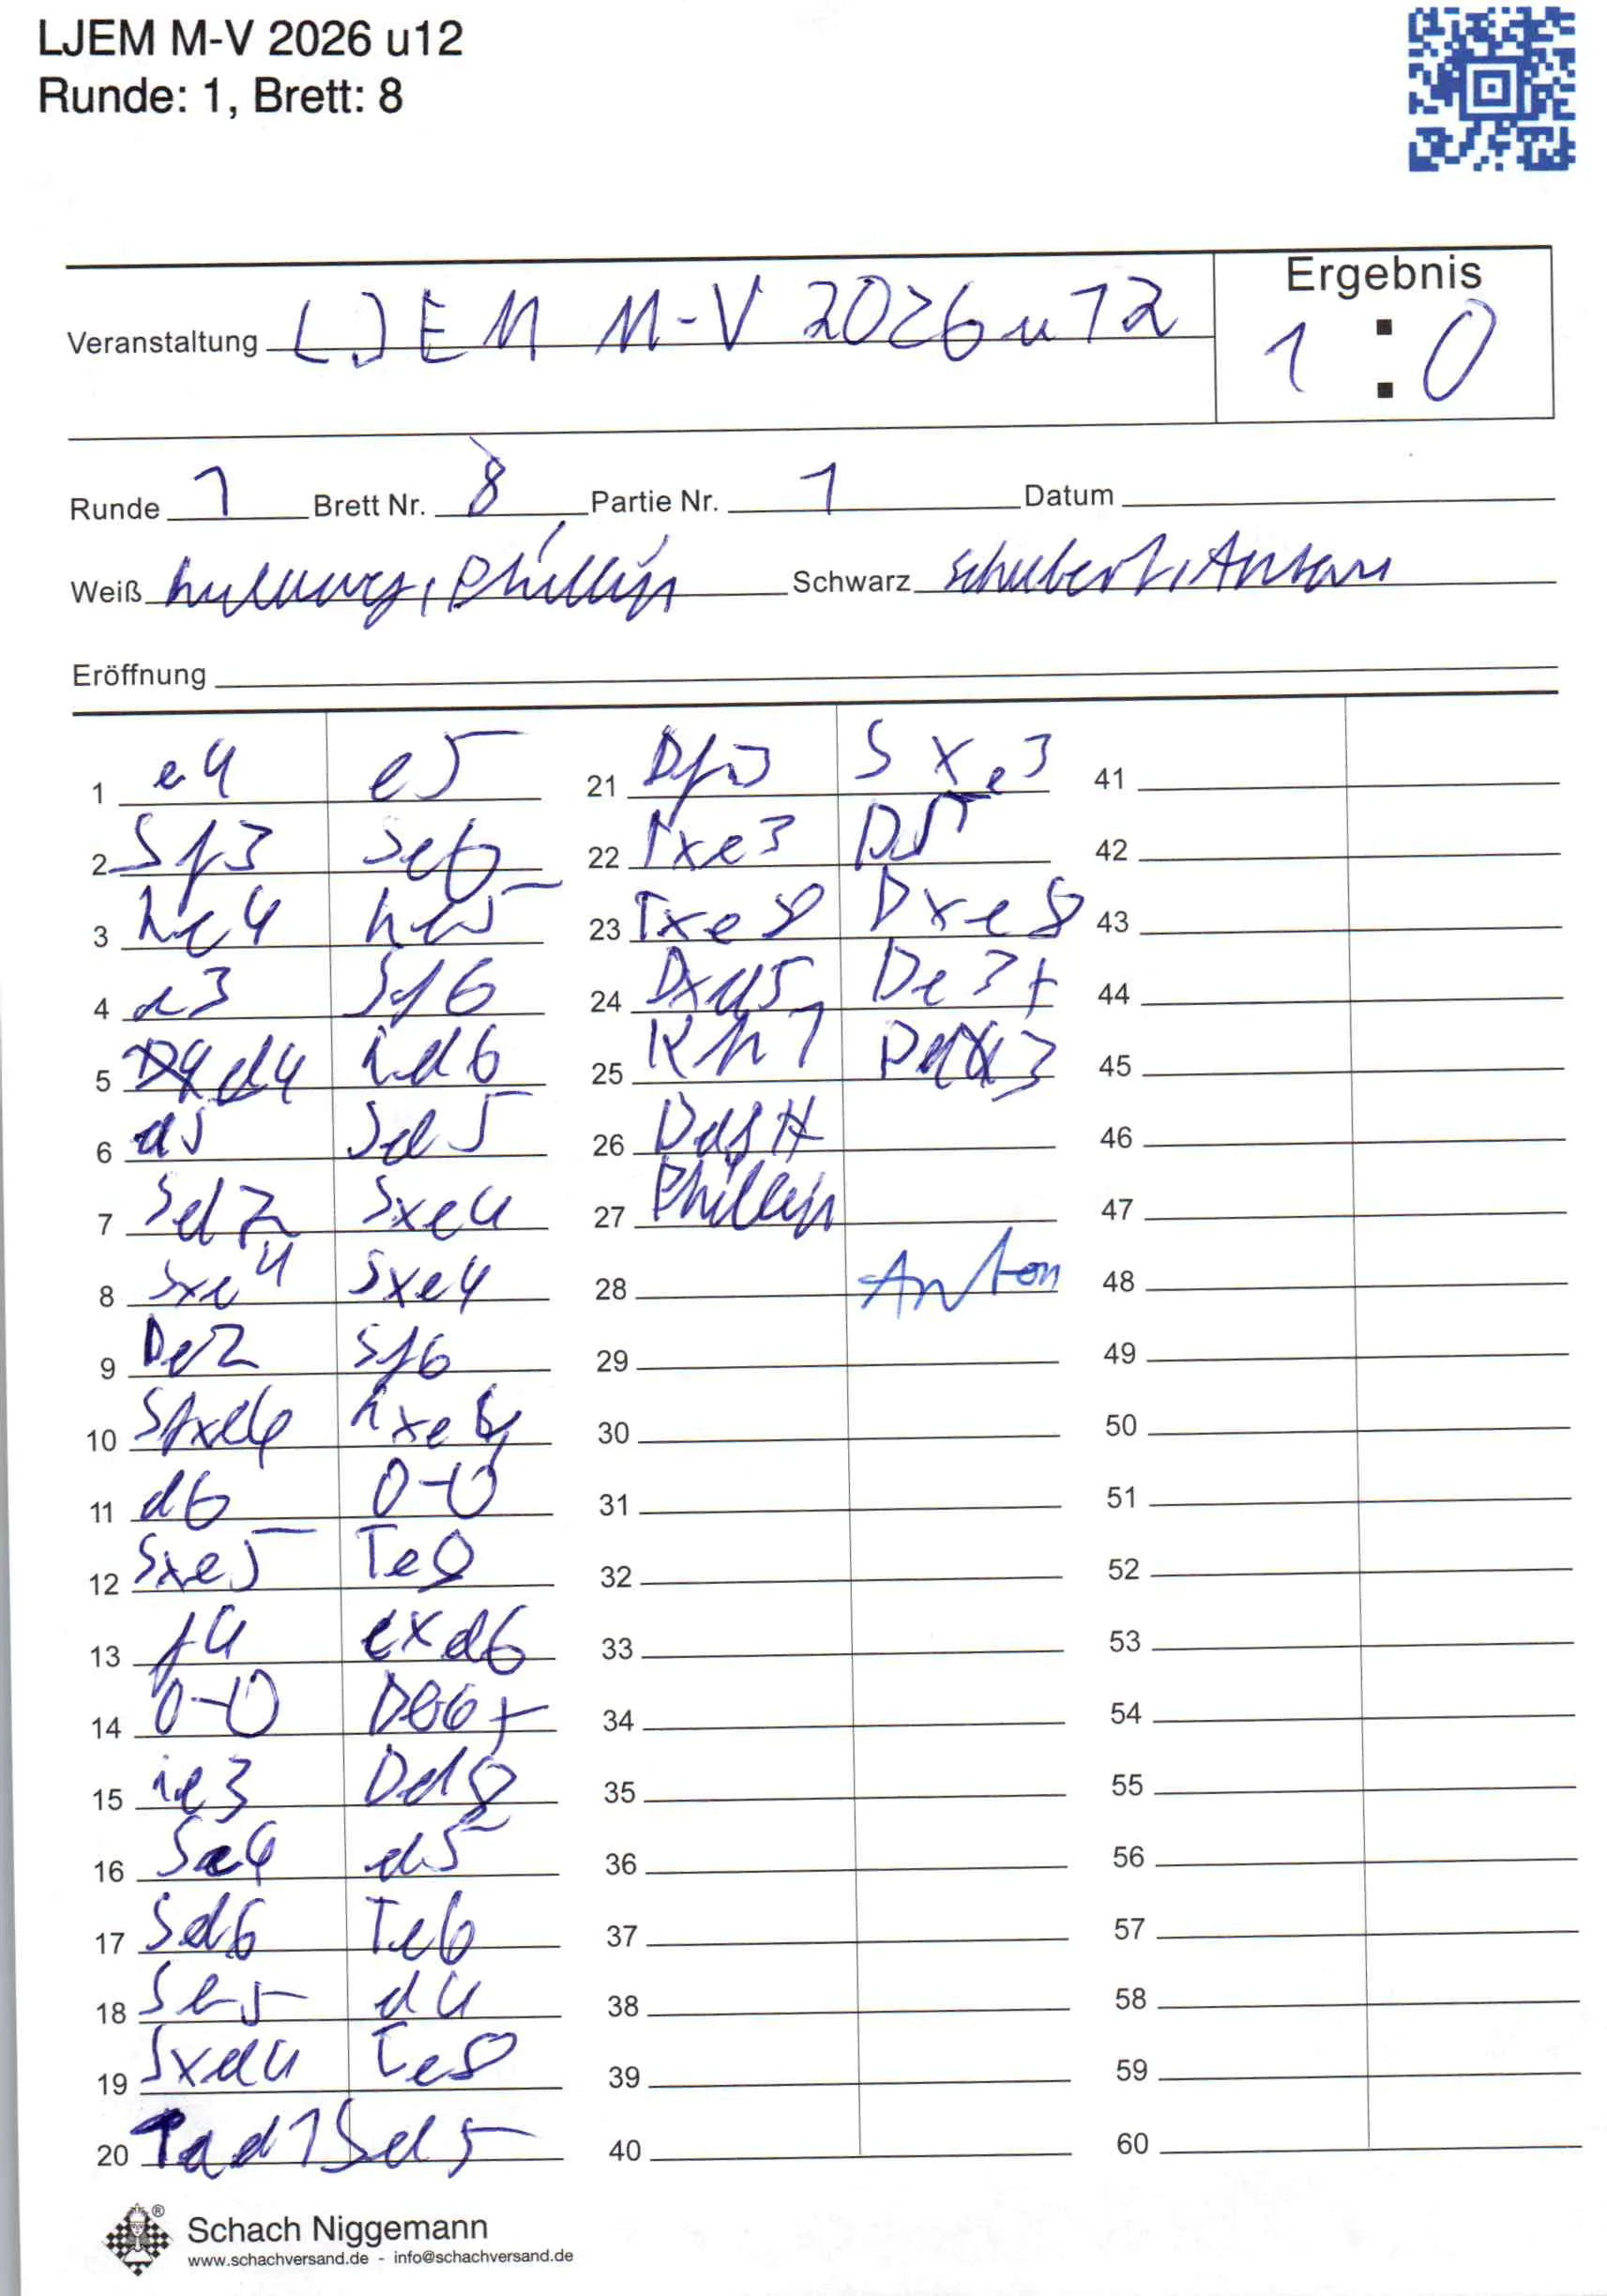 LJEM M-V 2026 u12
Runde: 1, Brett: 8
Ergebnis
Veranstaltung LJEM M-V 2026 u 12
1 : 0
Runde 1 Brett Nr. 8 Partie Nr. 1 Datum
Weiß Phillip Schwarz Schubert, Anton
Eröffnung
1 e4 e5
2 Sf3 Sc6
3 Lc4 Lc5
4 c3 Sf6
5 d4 Ld6
6 d5 Sa5
7 Sd2 Sxc4
8 Sxc4 Sxe4
9 De2 Sf6
10 Lxe5
11 d6 0-0
12 Sxe5 Te8
13 f4 cxd6
14 0-0 Db6+
15 Le3 Dd8
16 Sc4 d5
17 Sd6 Te6
18 Sb5 d4
19 Sxd4 Te8
20 Tad1 Sd5
21 Df3 Sxe3
22 Txe3
23 Txe8 Dxe8
24 De3+
25 Kh1
26 Dd8#
27 Phillip
28 Anton
29
30
31
32
33
34
35
36
37
38
39
40
41
42
43
44
45
46
47
48
49
50
51
52
53
54
55
56
57
58
59
60
Schach Niggemann
www.schachversand.de - info@schachversand.de